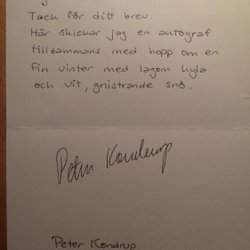 Tack för ditt brev
Här skickar jag en autograf
tillsammans med hopp om en
fin vinter med lagom kyla
och vit, gnistrande snö.
Peter Kondrup
Peter Kondrup